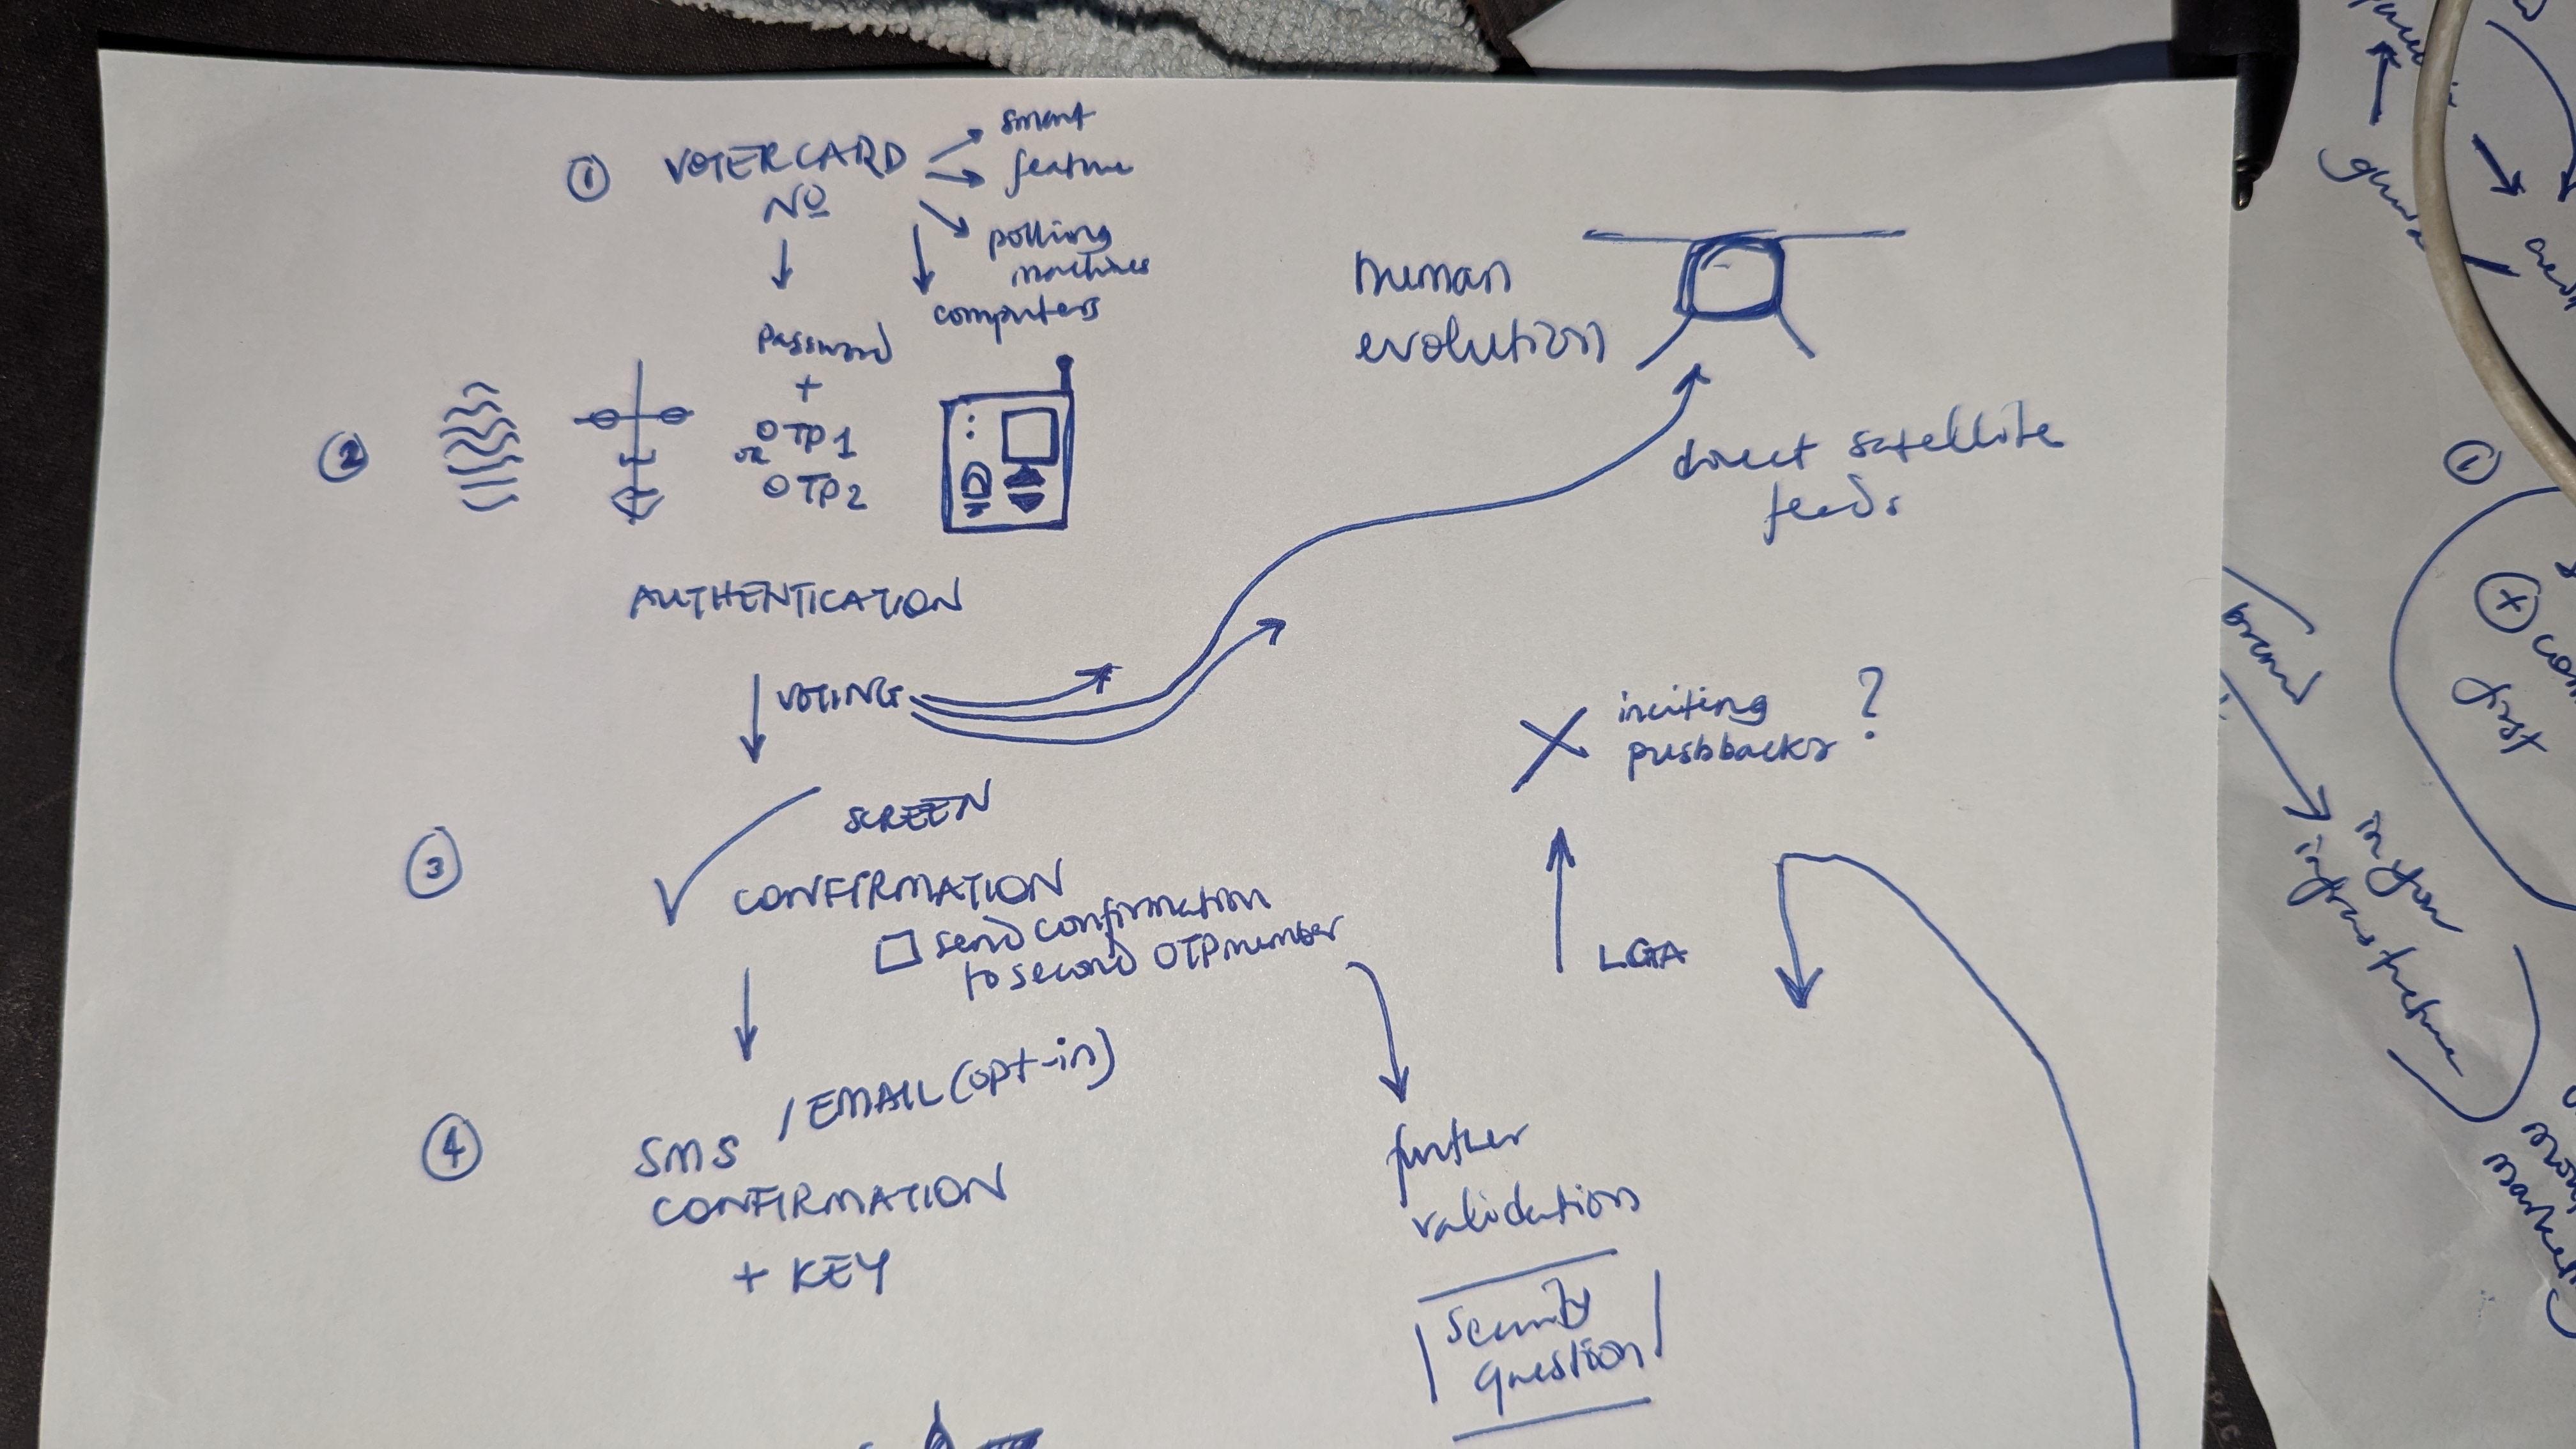 ① VOTERCARD
Nº
smart
feature
polling
machines
computers
Password
+
②
OTP1
OR
OTP2
AUTHENTICATION
VOTING
③
SCREEN
CONFIRMATION
send confirmation
to second OTP number
④
SMS / EMAIL (opt-in)
CONFIRMATION
+ KEY
human
evolution
direct satellite
feeds
inciting ?
pushbacks
LGA
further
validation
security
question
brand
first
infrastructure